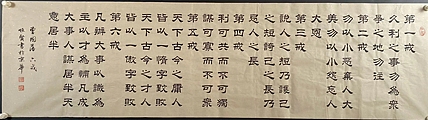 第一戒
久利之事勿為眾
爭之地勿往
第二戒
勿以小惡棄人大
美勿以小怨忘人
大恩
第三戒
說人之短乃護己
之短誇己之長乃
忌人之長
第四戒
利可共而不可獨
謀可寡而不可眾
第五戒
天下古今之庸人
皆以一惰字致敗
天下古今之才人
皆以一傲字致敗
第六戒
凡辦大事以識為
主以才為輔凡成
大事人謀居半天
意居半
曾國藩六戒
書於京華